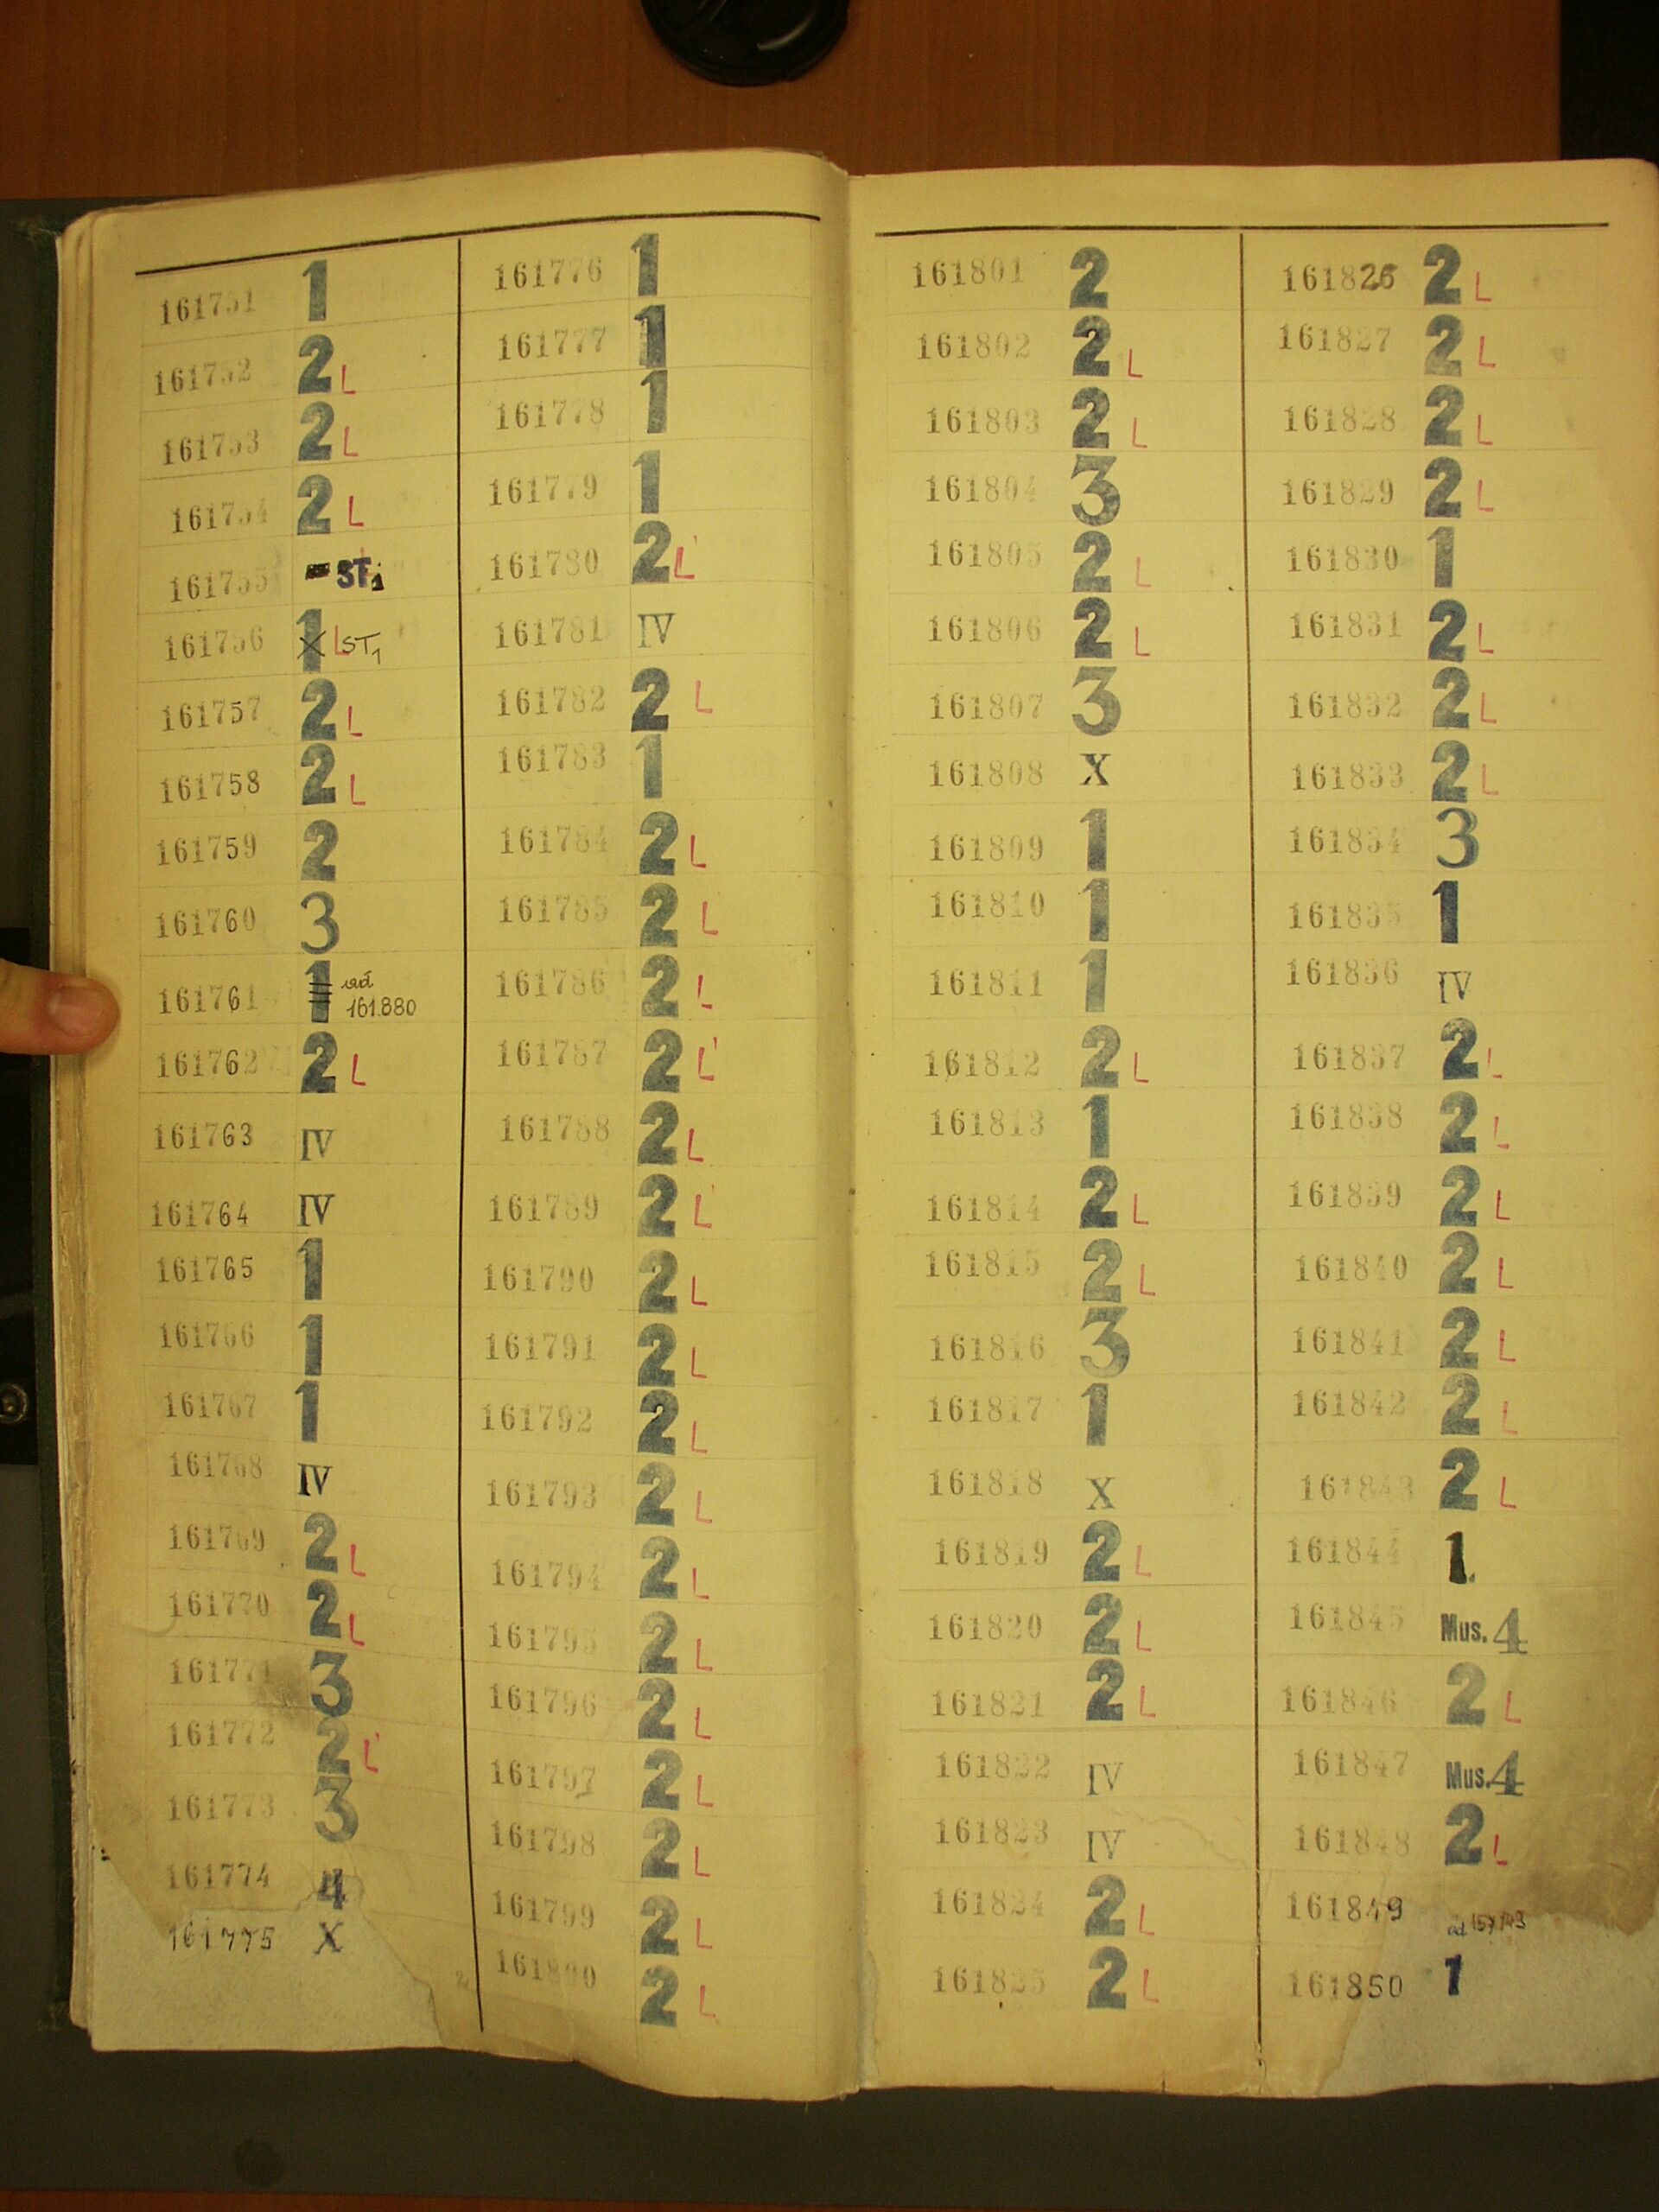 161751 1
161752 2 L
161753 2 L
161754 2 L
161755 - ST1
161756 1 X L ST1
161757 2 L
161758 2 L
161759 2
161760 3
161761 1 ad
161.880
161762 2 L
161763 IV
161764 IV
161765 1
161766 1
161767 1
161768 IV
161769 2 L
161770 2 L
161771 3
161772 2 L
161773 3
161774 4
161775 X
161776 1
161777 1
161778 1
161779 1
161780 2 L
161781 IV
161782 2 L
161783 1
161784 2 L
161785 2 L
161786 2 L
161787 2 L
161788 2 L
161789 2 L
161790 2 L
161791 2 L
161792 2 L
161793 2 L
161794 2 L
161795 2 L
161796 2 L
161797 2 L
161798 2 L
161799 2 L
161800 2 L
161801 2
161802 2 L
161803 2 L
161804 3
161805 2 L
161806 2 L
161807 3
161808 X
161809 1
161810 1
161811 1
161812 2 L
161813 1
161814 2 L
161815 2 L
161816 3
161817 1
161818 X
161819 2 L
161820 2 L
161821 2 L
161822 IV
161823 IV
161824 2 L
161825 2 L
161826 2 L
161827 2 L
161828 2 L
161829 2 L
161830 1
161831 2 L
161832 2 L
161833 2 L
161834 3
161835 1
161836 IV
161837 2 L
161838 2 L
161839 2 L
161840 2 L
161841 2 L
161842 2 L
161843 2 L
161844 1.
161845 Mus. 4
161846 2 L
161847 Mus. 4
161848 2 L
161849 ad
161850 1